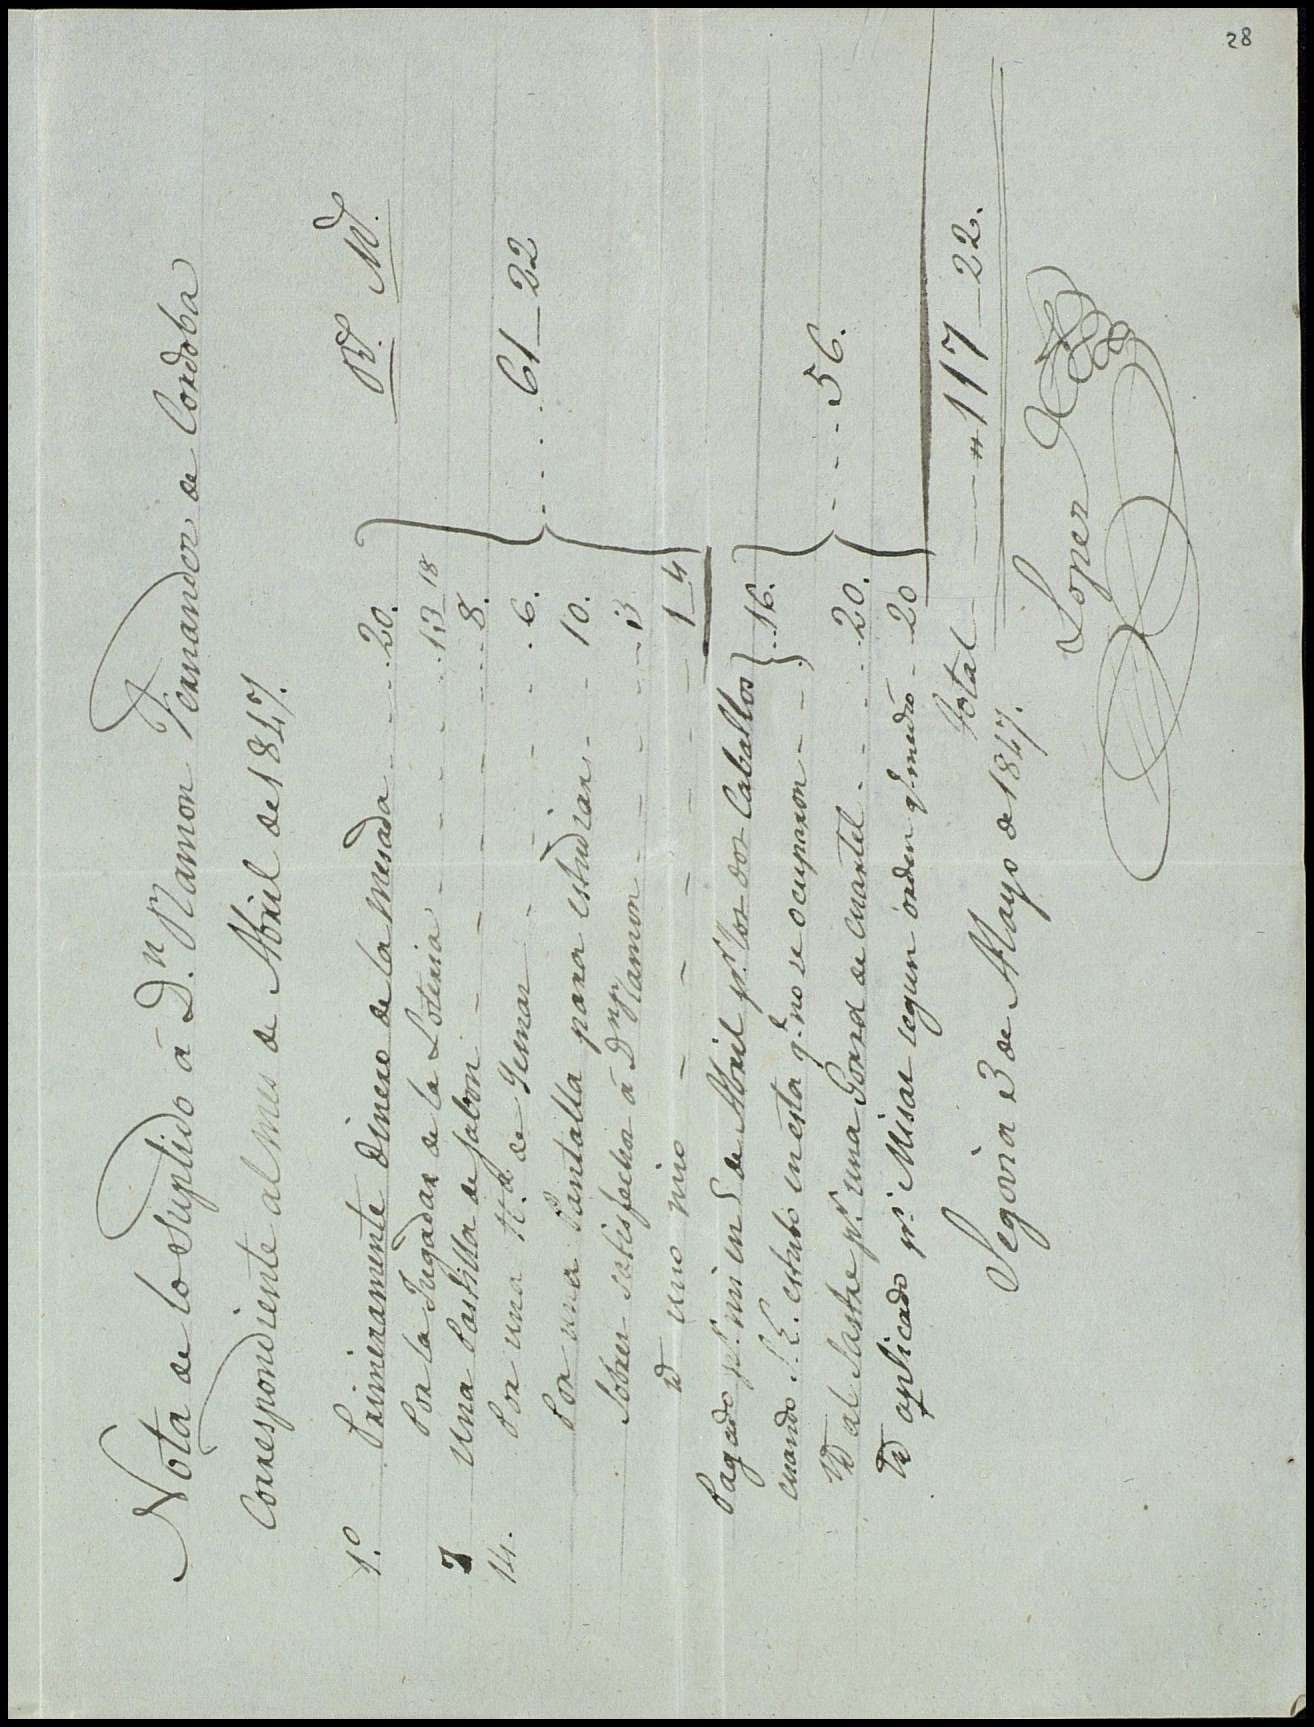 28
Nota de lo Suplido à D.n Ramon Fernandez de Cordoba
Correspondiente al mes de Abril de 1847.
R.s M.s
1.º Primeramente dinero de la Mesada - - - 20.
Por la Jugada de la Loteria - - - - 13_18
7 Una Pastilla de Jabon - - - - 8.
14. Por una de Gemas - - - - 6.
Por una Pantalla para estudiar - - 10.
Sobres satisfecha à D.n Ramon - - - - 3
Yd uno mio - - - - 1_4
- - - - 61_22
Pagado p.r mi en 5 de Abril p.r los dos Caballos
cuando S.E. estubo en esta q.e no se ocuparon - - - 16.
Yd al Sastre p.r una Gorra de cuartel - - - - 20.
Yd aplicado p.r Misas segun orden q.e medió - 20
- - - - 56.
Total - - " 117_22.
Segovia 3 de Mayo de 1847.
Lopez